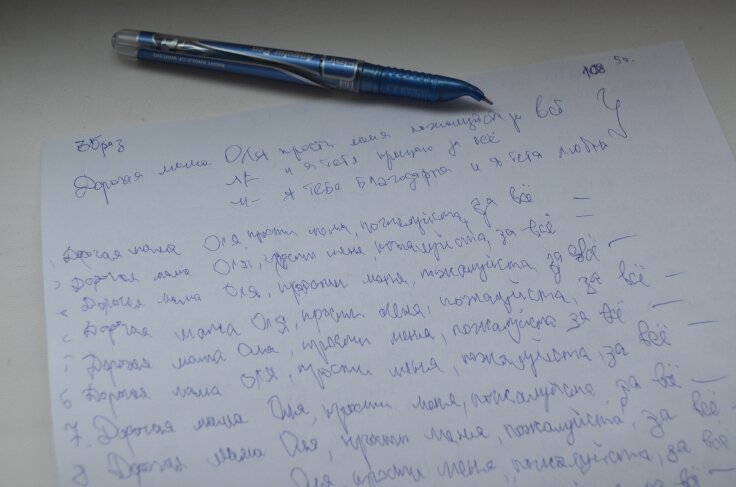 RIGHT ANGLE OF WRITING
108 5т.
Образ
Дорогая мама Оля прости меня пожалуйста за всё
-//- и я тебя прощаю за всё
-//- Я тебе благодарна и я тебя люблю
1 Дорогая мама Оля, прости меня, пожалуйста, за всё —
2 Дорогая мама Оля, прости меня, пожалуйста, за всё —
3 Дорогая мама Оля, прости меня, пожалуйста, за всё —
4 Дорогая мама Оля, прости меня, пожалуйста, за всё —
5 Дорогая мама Оля, прости меня, пожалуйста за всё —
6 Дорогая мама Оля, прости меня, пожалуйста, за всё —
7. Дорогая мама Оля, прости меня, пожалуйста, за всё —
8 Дорогая мама Оля, прости меня, пожалуйста, за всё -
Оля, прости меня, пожалуйста, за всё
всё